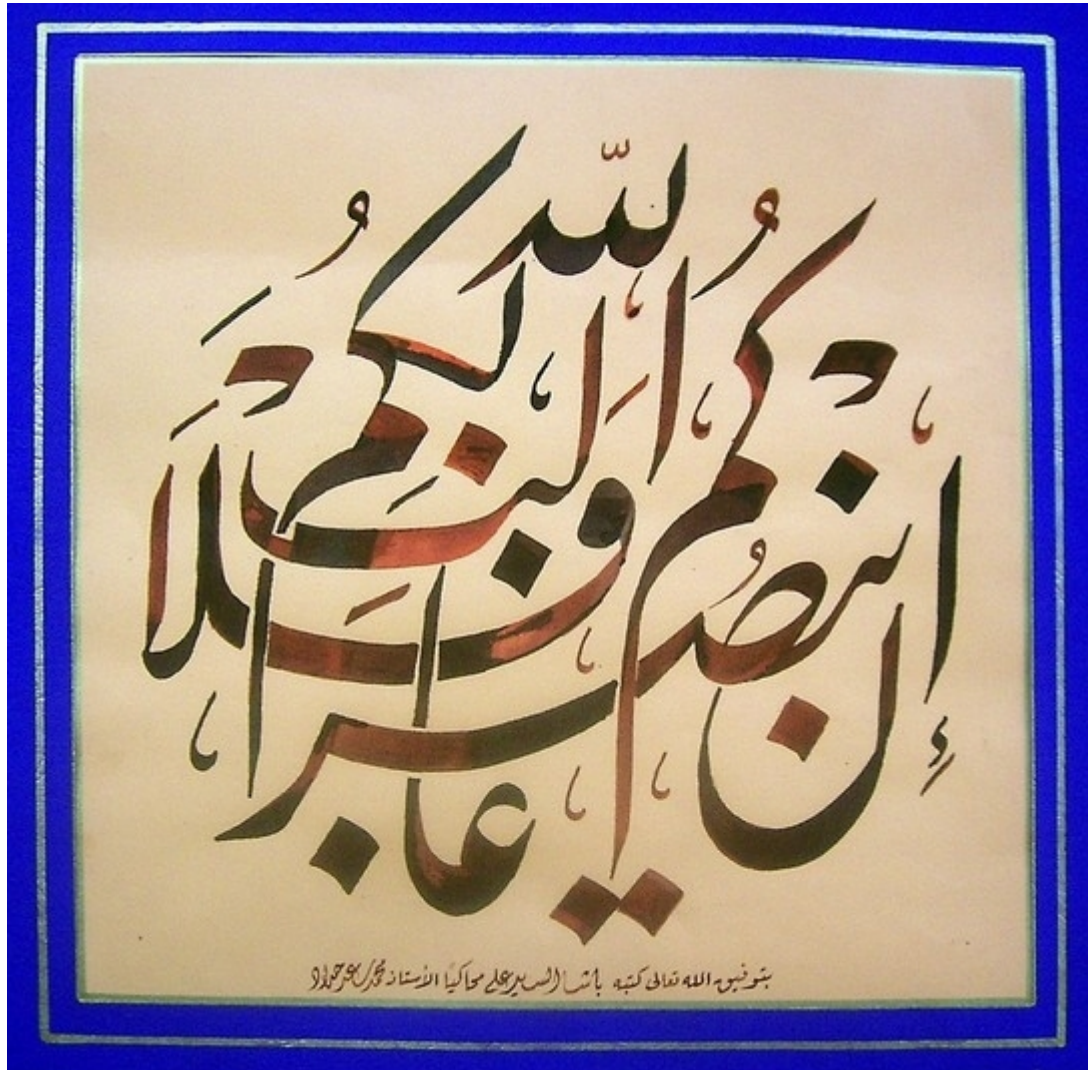 إِنْ يَنْصُرْكُمُ اللّٰهُ فَلَا غَالِبَ لَكُمْ
بتوفيق الله تعالى كتبه باشا السيد علي محاكيًا الأستاذ محمد سعد حداد